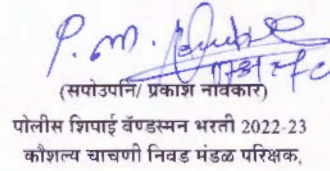 P. M.
(सपोउपनि/ प्रकाश नावकार)
पोलीस शिपाई बॅण्डस्मन भरती 2022-23
कौशल्य चाचणी निवड मंडळ परिक्षक,